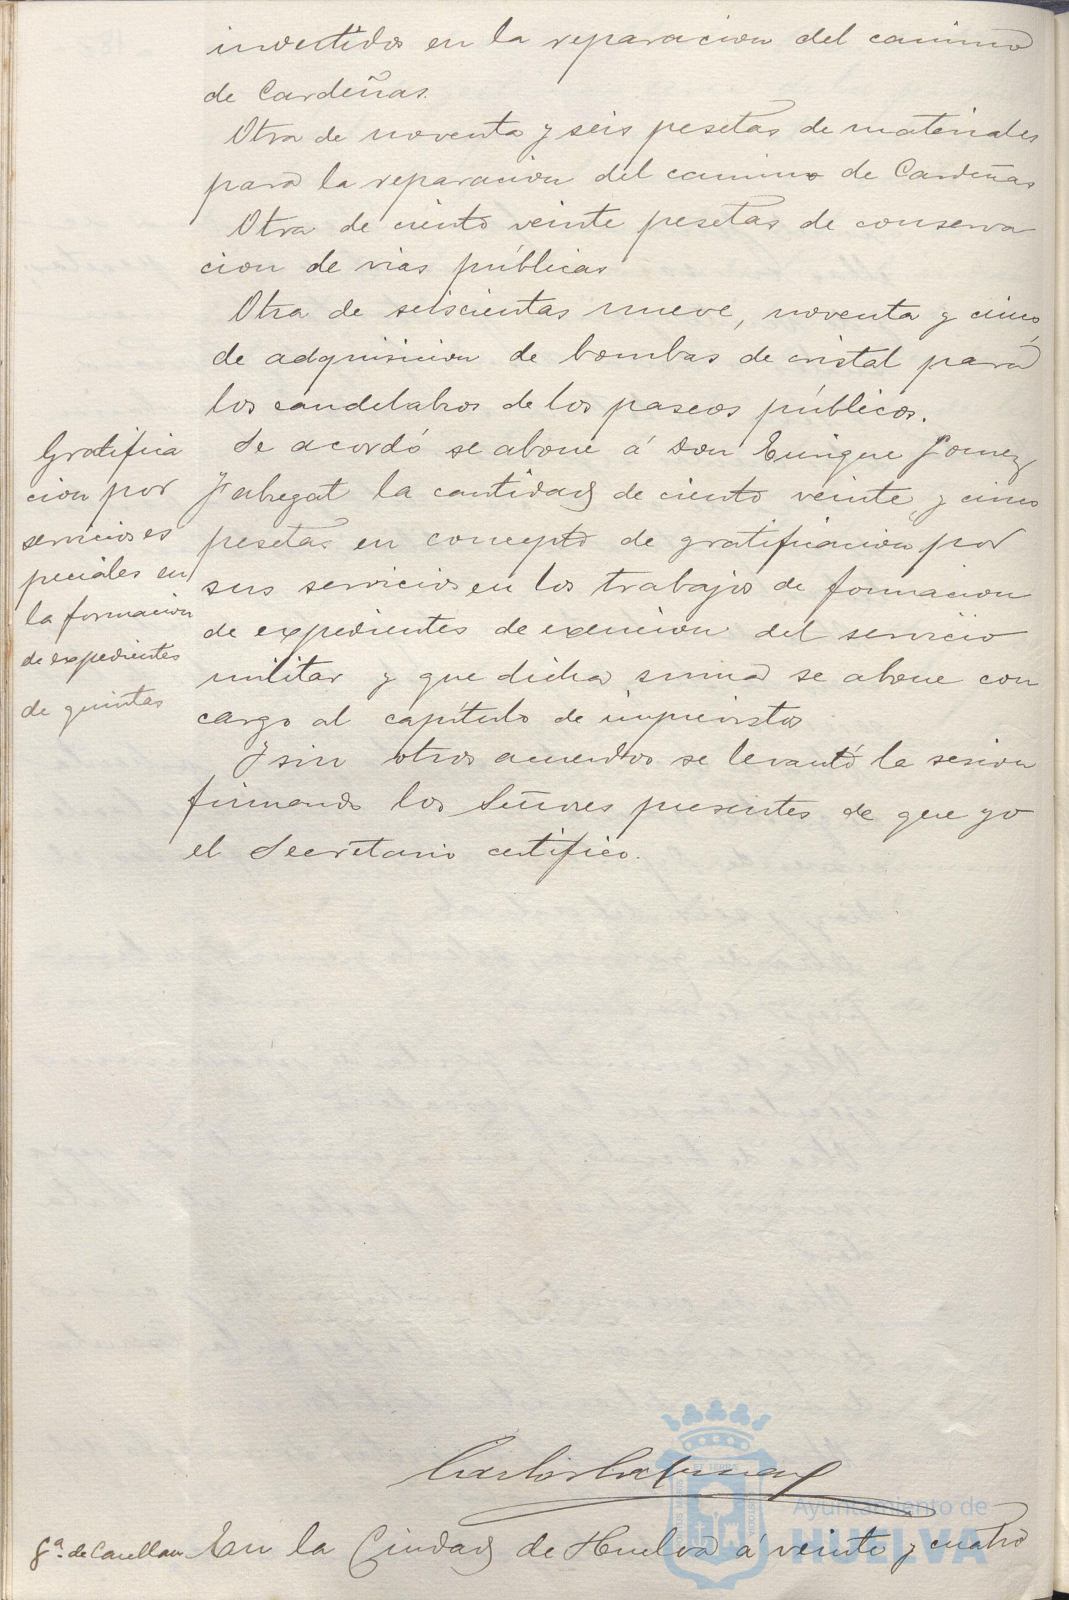 invertidos en la reparacion del camino
de Cardeñas.
Otra de noventa y seis pesetas de materiales
para la reparacion del camino de Cardeñas
Otra de ciento veinte pesetas de conserva
cion de vias públicas
Otra de seiscientas nueve, noventa y cinco,
de adquisicion de bombas de cristal para
los candelabros de los paseos públicos.
Gratifica
cion por
servicios es
peciales en
la formacion
de expedientes
de quintas
Se acordó se abone á Don Enrique Gomez
Fabregat la cantidad de ciento veinte y cinco
pesetas en concepto de gratificacion por
sus servicios en los trabajos de formacion
de expedientes de exencion del servicio
militar y que dicha suma se abone con
cargo al capítulo de imprevistos
Y sin otros acuerdos se levantó la sesion
firmando los Señores presentes de que yo
el Secretario certifico.
Ayuntamiento de
HUELVA
En la Ciudad de Huelva á veinte y cuatro